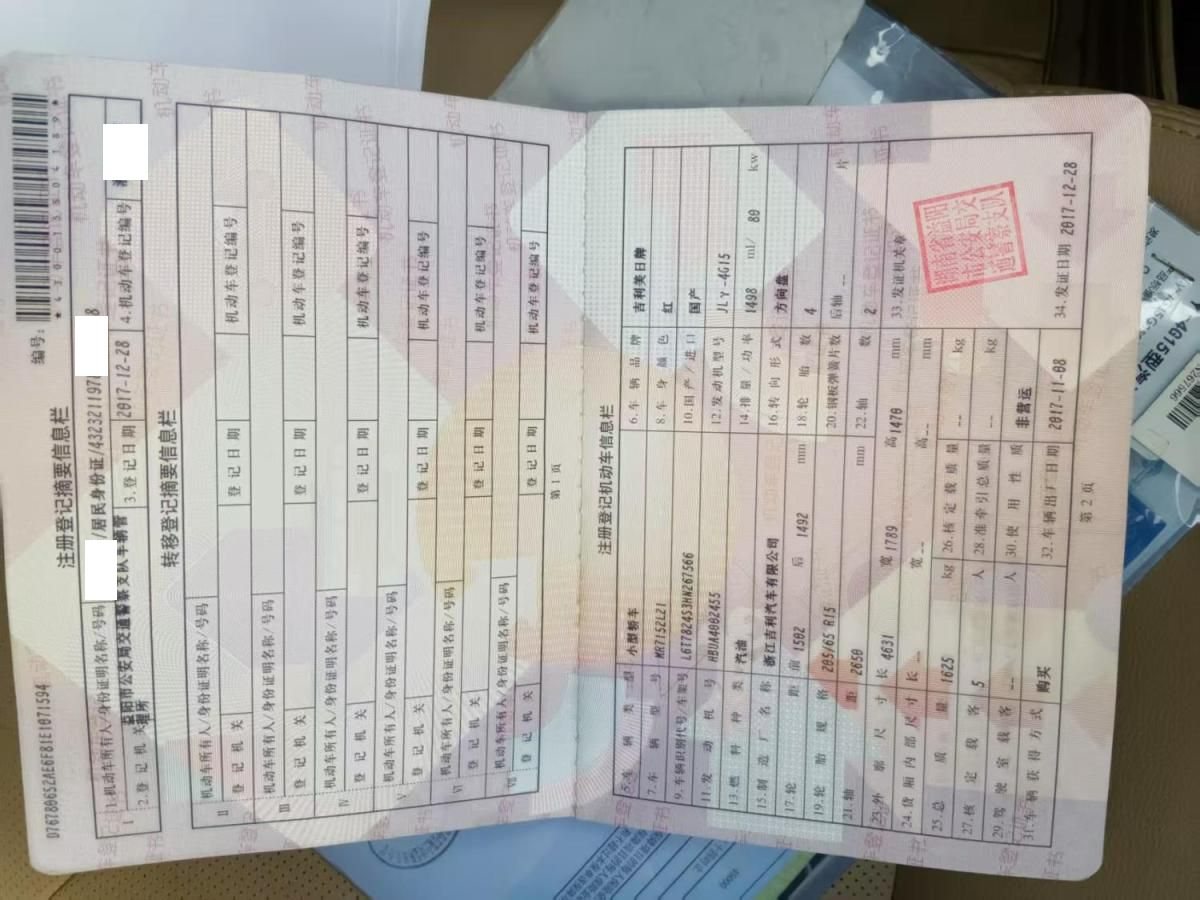 编号:
*430013504189*
D7678D652AE6F81E1071594
注册登记摘要信息栏
I 1.机动车所有人/身份证明名称/号码 /居民身份证/4323211197 8
2.登记机关 益阳市公安局交通警察支队车辆管理所 3.登记日期 2017-12-28 4.机动车登记编号
转移登记摘要信息栏
II 机动车所有人/身份证明名称/号码
登记机关 登记日期 机动车登记编号
III 机动车所有人/身份证明名称/号码
登记机关 登记日期 机动车登记编号
IV 机动车所有人/身份证明名称/号码
登记机关 登记日期 机动车登记编号
V 机动车所有人/身份证明名称/号码
登记机关 登记日期 机动车登记编号
VI 机动车所有人/身份证明名称/号码
登记机关 登记日期 机动车登记编号
VII 机动车所有人/身份证明名称/号码
登记机关 登记日期 机动车登记编号
第1页
注册登记机动车信息栏
5.车辆类型 小型轿车 6.车辆品牌 吉利美日牌
7.车辆型号 MR7152L21 8.车身颜色 红
9.车辆识别代号/车架号 L6T7824S3HN267566 10.国产/进口 国产
11.发动机号 HBUA4002455 12.发动机型号 JLY-4G15
13.燃料种类 汽油 14.排量/功率 1498 ml/ 80 kw
15.制造厂名称 浙江吉利汽车有限公司 16.转向形式 方向盘
17.轮距 前 1502 后 1492 mm 18.轮胎数 4
19.轮胎规格 205/65 R15 20.钢板弹簧片数 后轴 -- 片
21.轴距 2650 mm 22.轴数 2
23.外廓尺寸 长 4631 宽 1789 高 1470 mm 33.发证机关章
24.货厢内部尺寸 长 -- 宽 -- 高 -- mm
25.总质量 1625 kg 26.核定载质量 -- kg
27.核定载客 5 人 28.准牵引总质量 -- kg
29.驾驶室载客 -- 人 30.使用性质 非营运
31.车辆获得方式 购买 32.车辆出厂日期 2017-11-08 34.发证日期 2017-12-28
湖南省益阳
市公安局交
通警察支队
第2页